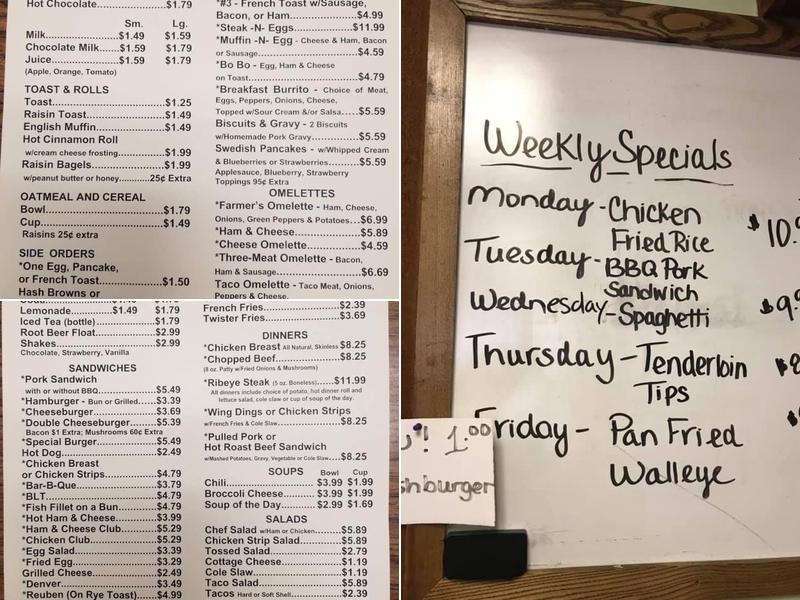 Hot Chocolate.....................$1.79
Sm. Lg.
Milk.....................$1.49 $1.59
Chocolate Milk....$1.59 $1.79
Juice....................$1.59 $1.79
(Apple, Orange, Tomato)
TOAST & ROLLS
Toast..............................$1.25
Raisin Toast...................$1.49
English Muffin................$1.49
Hot Cinnamon Roll
w/cream cheese frosting............$1.99
Raisin Bagels.................$1.99
w/peanut butter or honey.....25¢ Extra
OATMEAL AND CEREAL
Bowl...............................$1.79
Cup.................................$1.49
Raisins 25¢ extra
SIDE ORDERS
*One Egg, Pancake,
or French Toast..............$1.50
Hash Browns or
*#3 - French Toast w/Sausage,
Bacon, or Ham....................$4.99
*Steak -N- Eggs................$11.99
*Muffin -N- Egg - Cheese & Ham, Bacon
or Sausage...............................$4.59
*Bo Bo - Egg, Ham & Cheese
on Toast....................................$4.79
*Breakfast Burrito - Choice of Meat,
Eggs, Peppers, Onions, Cheese,
Topped w/Sour Cream &/or Salsa.....$5.59
Biscuits & Gravy - 2 Biscuits
w/Homemade Pork Gravy...............$5.59
Swedish Pancakes - w/Whipped Cream
& Blueberries or Strawberries..........$5.59
Applesauce, Blueberry, Strawberry
Toppings 95¢ Extra
OMELETTES
*Farmer's Omelette - Ham, Cheese,
Onions, Green Peppers & Potatoes...$6.99
*Ham & Cheese....................$5.89
*Cheese Omelette.................$4.59
*Three-Meat Omelette - Bacon,
Ham & Sausage.........................$6.69
Taco Omelette - Taco Meat, Onions,
Peppers & Cheese.
Lemonade.............$1.49 $1.79
Iced Tea (bottle)................$1.79
Root Beer Float.................$2.99
Shakes..............................$2.99
Chocolate, Strawberry, Vanilla
SANDWICHES
*Pork Sandwich
with or without BBQ......................$5.49
*Hamburger - Bun or Grilled.....$3.39
*Cheeseburger....................$3.69
*Double Cheeseburger........$5.39
Bacon $1 Extra; Mushrooms 60¢ Extra
*Special Burger...................$5.49
Hot Dog.............................$2.49
*Chicken Breast
or Chicken Strips...............$4.79
*Bar-B-Que........................$3.79
*BLT..................................$4.79
*Fish Fillet on a Bun...........$4.79
*Hot Ham & Cheese............$3.99
*Ham & Cheese Club...........$5.29
*Chicken Club.....................$5.29
*Egg Salad..........................$3.39
*Fried Egg..........................$3.29
Grilled Cheese....................$2.49
*Denver..............................$3.49
*Reuben (On Rye Toast).....$4.99
$2.39
French Fries.......................
Twister Fries.......................$3.69
DINNERS
*Chicken Breast All Natural, Skinless $8.25
*Chopped Beef.....................$8.25
(8 oz. Patty w/Fried Onions & Mushrooms)
*Ribeye Steak (5 oz. Boneless)......$11.99
All dinners include choice of potato, hot dinner roll and
lettuce salad, cole slaw or cup of soup of the day.
*Wing Dings or Chicken Strips
w/French Fries & Cole Slaw.....................$8.25
*Pulled Pork or
Hot Roast Beef Sandwich
w/Mashed Potatoes, Gravy, Vegetable or Cole Slaw.....$8.25
SOUPS Bowl Cup
Chili.........................$3.99 $1.99
Broccoli Cheese........$3.99 $1.99
Soup of the Day........$2.99 $1.69
SALADS
Chef Salad w/Ham or Chicken........$5.89
Chicken Strip Salad............$5.89
Tossed Salad......................$2.79
Cottage Cheese...................$1.19
Cole Slaw............................$1.19
Taco Salad...........................$5.89
Tacos Hard or Soft Shell............$2.39
Weekly Specials
Monday - Chicken
Fried Rice
Tuesday - BBQ Pork
Sandwich
Wednesday - Spaghetti
Thursday - Tenderloin
Tips
Friday - Pan Fried
Walleye
1.00